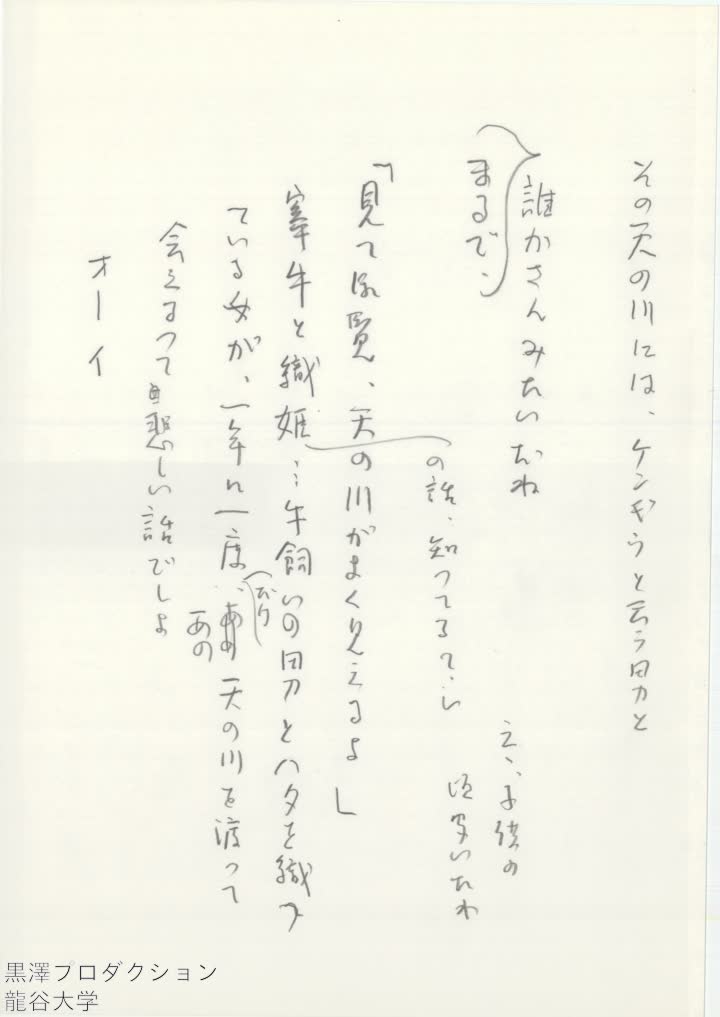 その天の川には、ケンギうと云う男と
誰かさんみたいだね
まるで、
え、子供の
頃聞いたわ
の話、知ってるてい
「見て御覧、天の川がよく見えるよ」
牽牛と織姫…牛飼いの男とハタを織つ
ている女が、一年に一度…
(だけ)
あの
天の川を渡って
会えるつて悲しい話でしよ
オーイ
黒澤プロダクション
龍谷大学